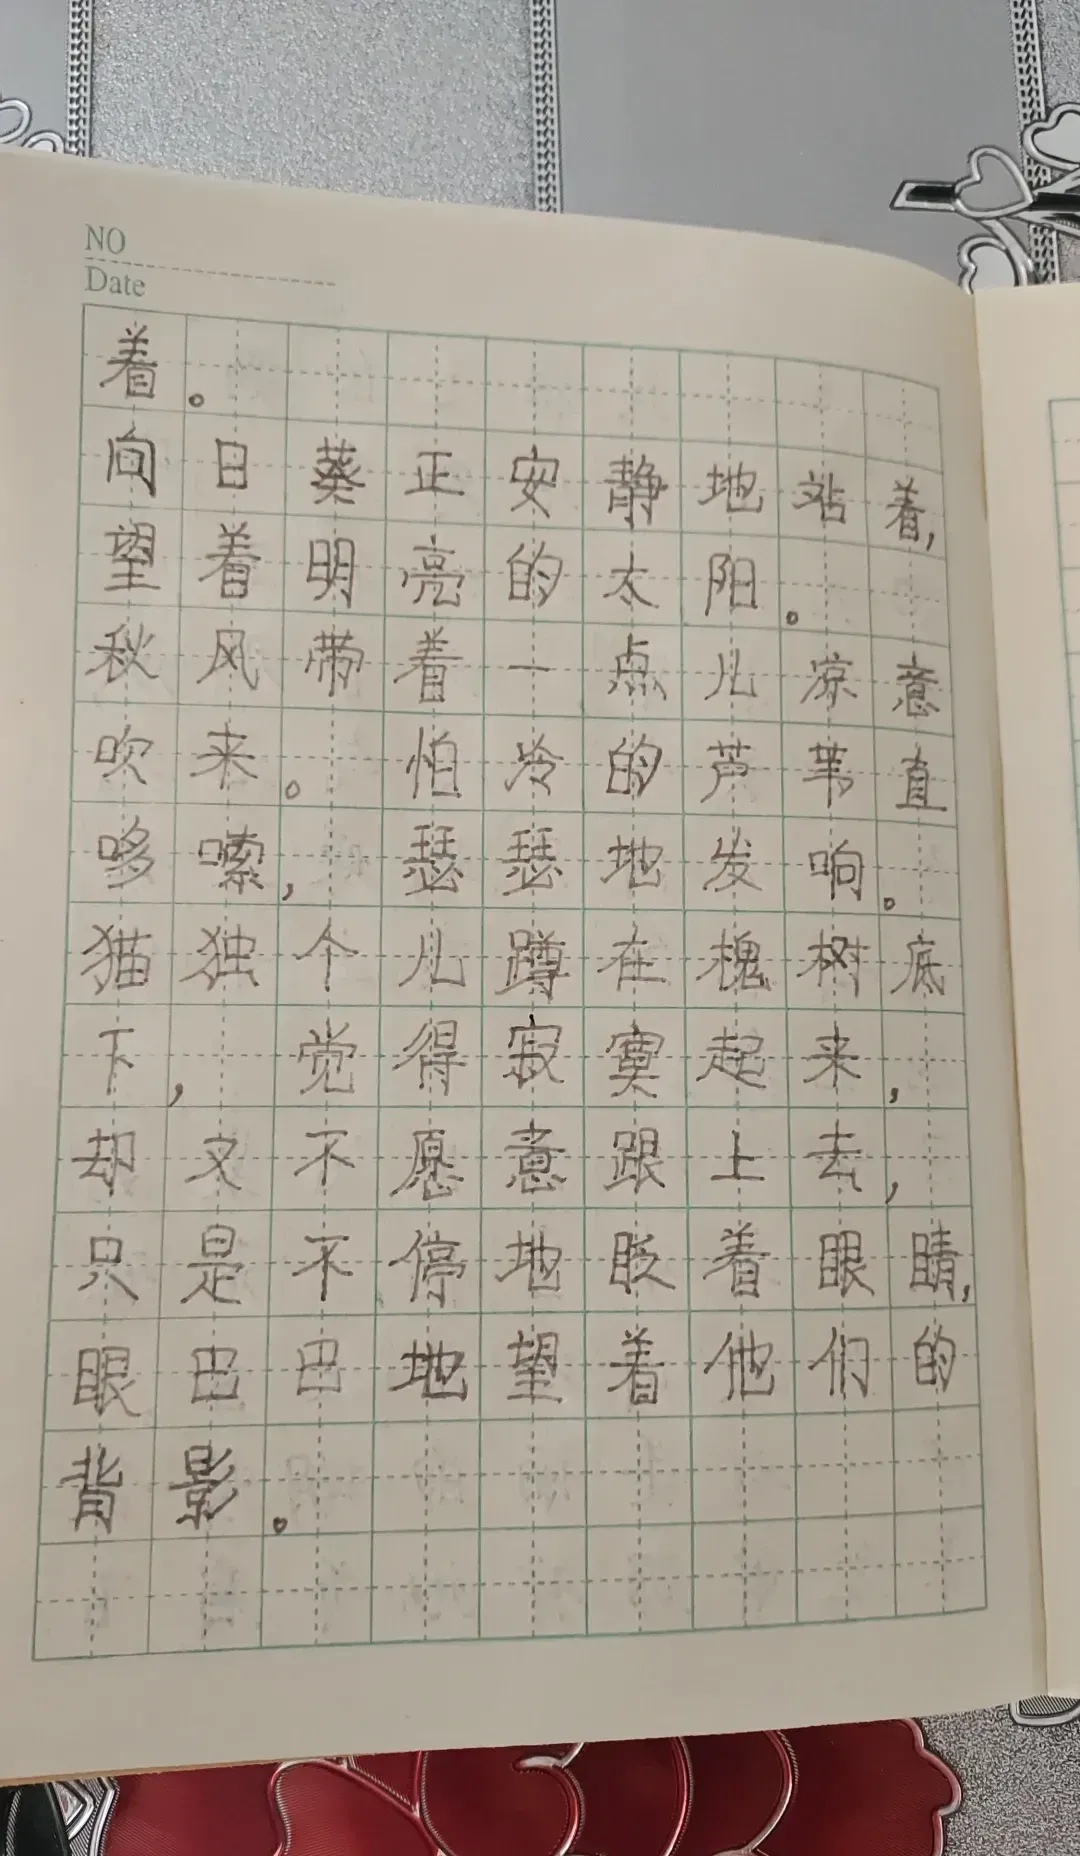 NO
Date
着。
向日葵正安静地站着,
望着明亮的太阳。
秋风带着一点儿凉意
吹来。怕冷的芦苇直
哆嗦,瑟瑟地发响。
猫独个儿蹲在槐树底
下,觉得寂寞起来,
却又不愿意跟上去,
只是不停地眨着眼睛,
眼巴巴地望着他们的
背影。